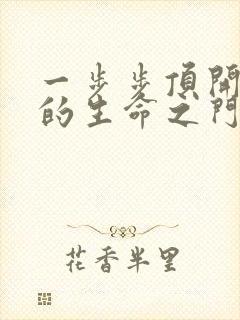 一步步頂開
的生命之門
花香半里